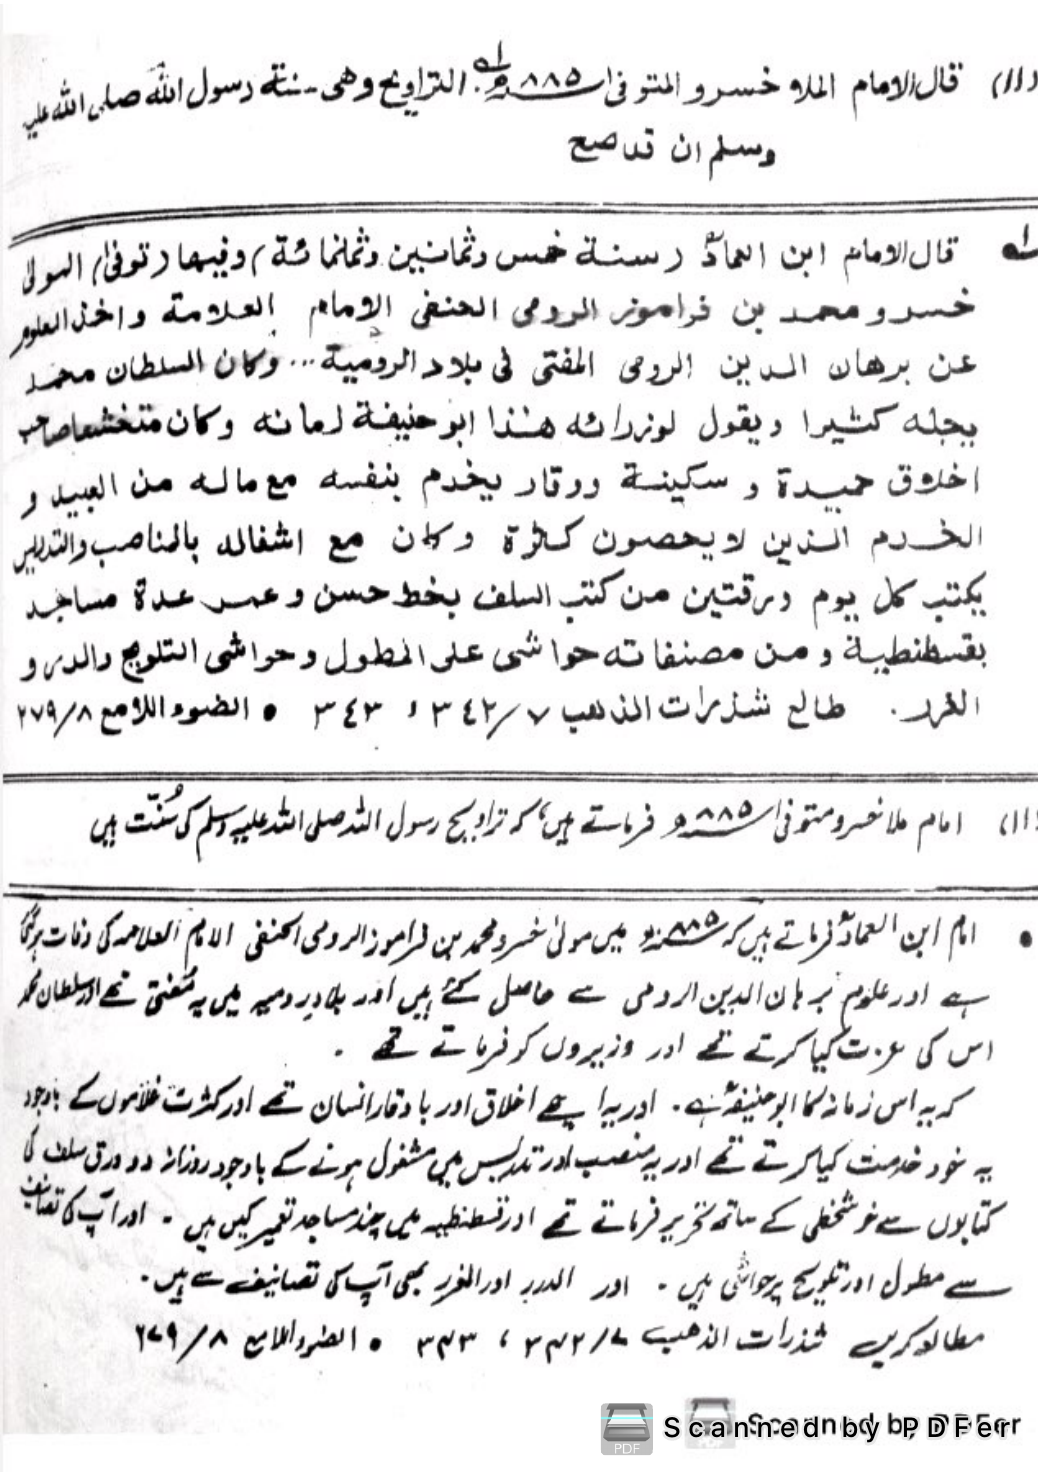 (١١) قال الامام الملا خسرو المتوفی ۸۸۵ھ التراویح وھی سنتة رسول اللہ صلی اللہ علیہ
وسلم ان قد صح
لہ قال الامام ابن العمادؒ (سنة خمس وثمانین وثمانمائة) وفیها (توفی) المولی
خسرو محمد بن فراموز الرومی الحنفی الامام العلامة واخذ العلوم
عن برهان الدین الرومی المفتی فی بلاد الرومیة... وکان السلطان محمد
یجله کثیرا ویقول لوزرائه هذا ابو حنیفة زمانه وکان متخشعا صاحب
اخلاق حمیدة و سکینة ووقار یخدم بنفسه مع ماله من العبید و
الخدم الذین لا یحصون کثرة وکان مع اشغاله بالمناصب والتدریس
یکتب کل یوم ورقتین من کتب السلف بخط حسن وعمر عدة مساجد
بقسطنطیة ومن مصنفاته حواشی علی المطول وحواشی التلویح والدر و
الغرر. طالع شذرات الذهب ٧/٣٤٢، ٣٤٣ • الضوء اللامع ٨/٢٧٩
(١١) امام ملا خسرو متوفی ۸۸۵ھ فرماتے ہیں، کہ تراویح رسول اللہ صلی اللہ علیہ وسلم کی سُنّت ہیں
• امام ابن العمادؒ فرماتے ہیں کہ ۸۸۵ھ میں مولیٰ خسرو محمد بن فراموز الرومی الحنفی الامام العلامہ کی وفات ہوگئی
ہے اور علوم برہان الدین الرومی سے حاصل کئے ہیں اور بلادِ رومیہ میں یہ مُفتی تھے اور سلطان محمد
اس کی عزت کیا کرتے تھے اور وزیروں کو فرماتے تھے ۔
کہ یہ اس زمانہ کا ابو حنیفہؒ ہے۔ اور یہ اچھے اخلاق اور باوقار انسان تھے اور کثرت غلاموں کے باوجود
یہ خود خدمت کیا کرتے تھے اور یہ منصب اور تدریس میں مشغول ہونے کے باوجود روزانہ دو ورق سلف کی
کتابوں سے خوشخطی کے ساتھ تحریر فرماتے تھے اور قسطنطیہ میں چند مساجد تعمیر کیں ہیں ۔ اور آپ کی تصانیف
سے مطول اور تلویح پر حواشی ہیں ۔ اور الدرر اور الغرر بھی آپ کی تصانیف سے ہیں۔
مطالعہ کریں شذرات الذھب ۷/۳۴۲، ۳۴۳ • الضوء اللامع ۸/۲۷۹
Scanned by PDFer